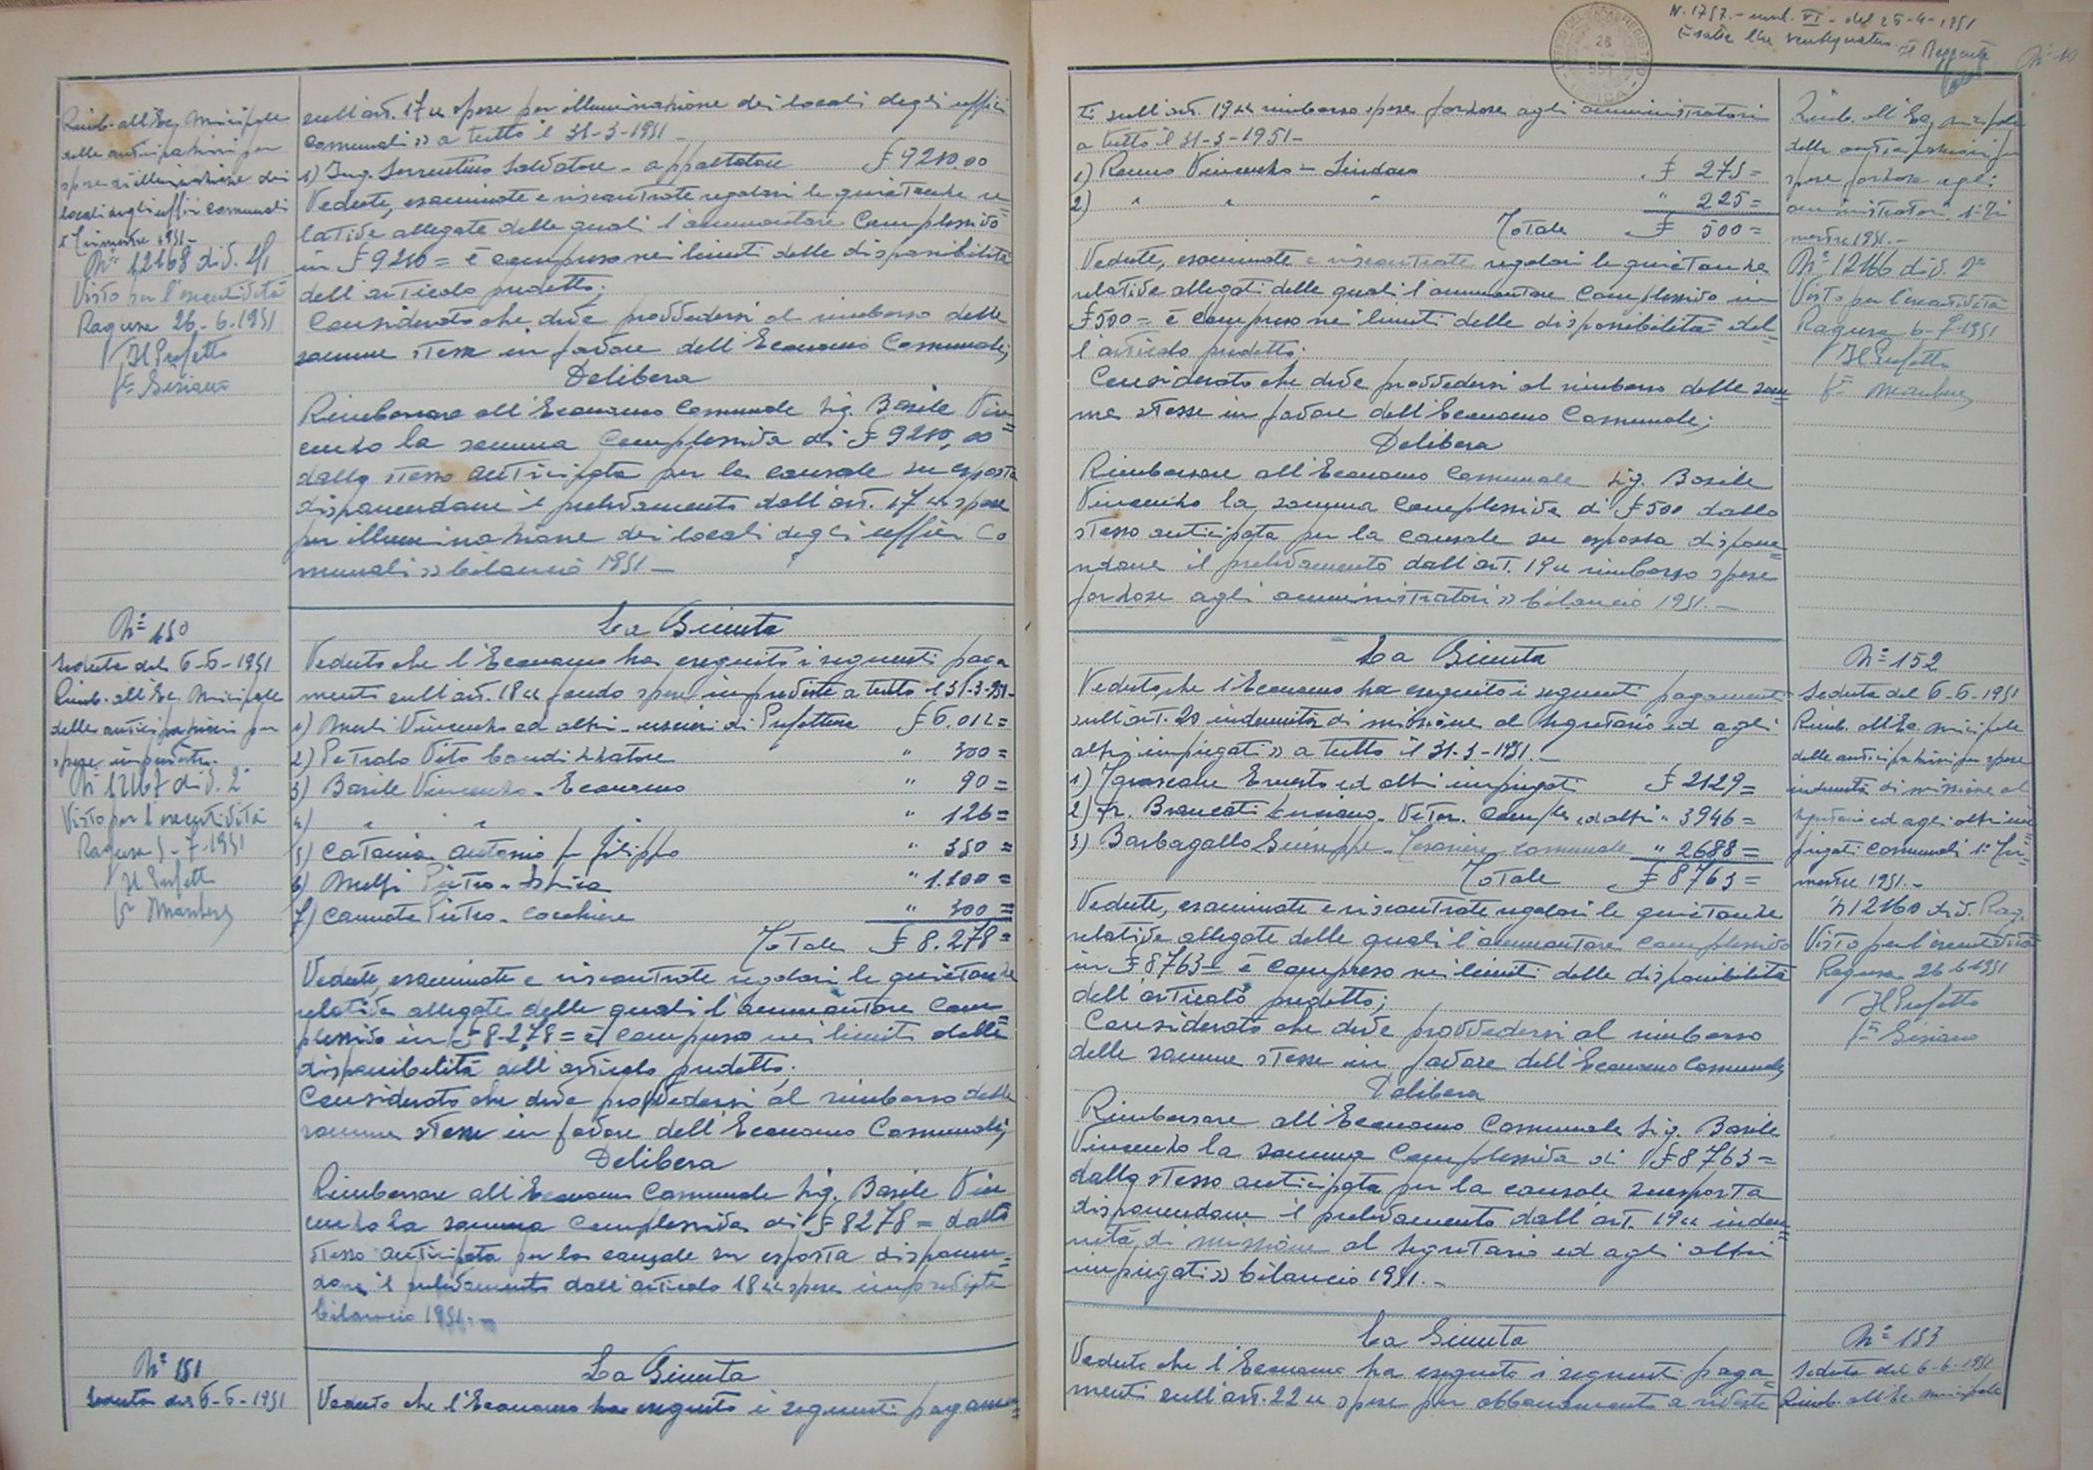 Rimb. all'Ec. Municipale
delle anticipazioni per
spese di illuminazione dei
locali degli uffici comunali
1° Trimestre 1951-
N° 12168 di S. 2/1
Visto per l'esecutività
Ragusa 26-6-1951
Il Prefetto
N° 150
Seduta del 6-6-1951
Rimb. all'Ec. Municipale
delle anticipazioni per
spese impreviste.
N° 12167 di S. 2ª
Visto per l'esecutività
Ragusa 5-7-1951
Il Prefetto
N° 151
Seduta del 6-6-1951
sull'art. 17 "spese per illuminazione dei locali degli uffici
comunali" a tutto il 31-3-1951-
1) Ing. Sorrentino Salvatore - appaltatore £ 9210.00
Vedute, esaminate e riscontrate regolari le quietanze re=
lative allegate delle quali l'ammontare complessivo
in £ 9210= è compreso nei limiti delle disponibilità
dell'articolo predetto;
Considerato che deve provvedersi al rimborso delle
somme stesse in favore dell'Economo Comunale;
Delibera
Rimborsare all'Economo Comunale Sig. Basile Vin=
cenzo la somma complessiva di £ 9210,00
dallo stesso anticipata per la causale su esposta
disponendone il prelevamento dall'art. 17 "spese
per illuminazione dei locali degli uffici Co
munali" bilancio 1951-
La Giunta
Veduto che l'Economo ha eseguito i seguenti paga
menti sull'art. 18 "fondo spese impreviste a tutto il 31-3-951-
1) Merli Vincenzo ed altri - uscieri di Prefettura £ 6.012=
2) Petralo Vito banditore " 300=
3) Basile Vincenzo - Economo " 90=
4) " " " 126=
5) Catania Antonio fu Filippo " 350=
6) Melfi Pietro - Ispica " 1.100=
7) Cannata Pietro - cocchiere " 300=
Totale £ 8.278=
Vedute, esaminate e riscontrate regolari le quietanze
relative allegate delle quali l'ammontare com=
plessivo in £ 8.278= è compreso nei limiti delle
disponibilità dell'articolo predetto;
Considerato che deve provvedersi al rimborso delle
somme stesse in favore dell'Economo Comunale;
Delibera
Rimborsare all'Economo Comunale Sig. Basile Vin
cenzo la somma complessiva di £ 8278= dallo
stesso anticipata per la causale su esposta disponen=
done il prelevamento dall'articolo 18 "spese impreviste
bilancio 1951.-
La Giunta
Veduto che l'Economo ha eseguito i seguenti pagame=
N. 1757.- mod. VI - del 28-4-1951
Esatte lire
Il Reggente
ti sull'art. 19 "rimborso spese forzose agli amministratori
a tutto il 31-3-1951-
1) Vincenzo - Sindaco £ 275=
2) " " " " 225=
Totale £ 500=
Vedute, esaminate e riscontrate regolari le quietanze
relative allegati delle quali l'ammontare complessivo in
£ 500= è compreso nei limiti delle disponibilità del=
l'articolo predetto;
Considerato che deve provvedersi al rimborso delle som=
me stesse in favore dell'Economo Comunale;
Delibera
Rimborsare all'Economo Comunale Sig. Basile
Vincenzo la somma complessiva di £ 500 dallo
stesso anticipata per la causale su esposta dispone=
ndone il prelevamento dall'art. 19 "rimborso spese
forzose agli amministratori" bilancio 1951.-
La Giunta
Veduto che l'Economo ha eseguito i seguenti pagamenti
sull'art. 20 indennità di missione al Segretario ed agli
altri impiegati" a tutto il 31-3-1951.-
1) Ernesto ed altri impiegati £ 2129=
2) Dr. Brancati Luciano - Veter. Com/le ed altri " 3946=
3) Barbagallo Giuseppe - Tesoriere comunale " 2688=
Totale £ 8763=
Vedute, esaminate e riscontrate regolari le quietanze
relative allegate delle quali l'ammontare complessivo
in £ 8763= è compreso nei limiti delle disponibilità
dell'articolo predetto;
Considerato che deve provvedersi al rimborso
delle somme stesse in favore dell'Economo Comunale;
Delibera
Rimborsare all'Economo Comunale Sig. Basile
Vincenzo la somma complessiva di £ 8763=
dallo stesso anticipata per la causale suesposta
disponendone il prelevamento dall'art. 19 "inden=
nità di missione al Segretario ed agli altri
impiegati" bilancio 1951.-
La Giunta
Veduto che l'Economo ha eseguito i seguenti paga=
menti sull'art. 22 "spese per abbonamento a riviste
Rimb. all'Ec. Municipale
delle anticipazioni per
spese forzose agli
amministratori 1° Tri
mestre 1951.-
N° 12166 di S. 2ª
Visto per l'esecutività
Ragusa 6-7-1951
Il Prefetto
N° 152
Seduta del 6-6-1951
Rimb. all'Ec. Municipale
delle anticipazioni per spese
indennità di missione al
Segretario ed agli altri im=
piegati comunali 1° Tri=
mestre 1951.-
N 12160 di S. Rag.
Visto per l'esecutività
Ragusa 26-6-1951
Il Prefetto
N° 153
Seduta del 6-6-1951
Rimb. all'Ec. Municipale